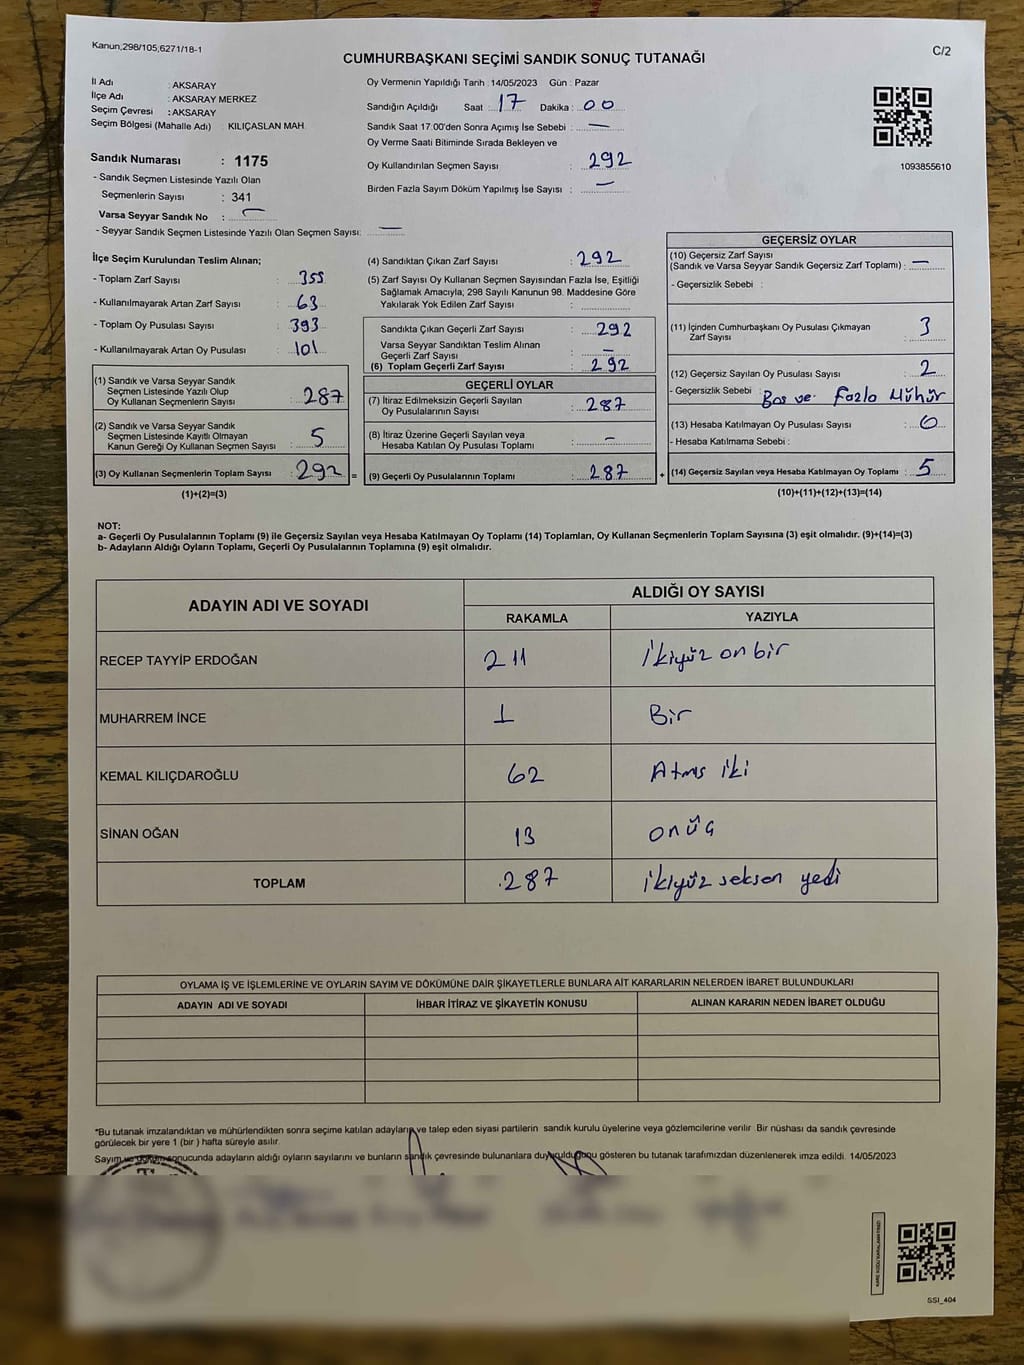 Kanun,298/105,6271/18-1
C/2
CUMHURBAŞKANI SEÇİMİ SANDIK SONUÇ TUTANAĞI
İl Adı : AKSARAY
İlçe Adı : AKSARAY MERKEZ
Seçim Çevresi : AKSARAY
Seçim Bölgesi (Mahalle Adı) : KILIÇASLAN MAH
Sandık Numarası : 1175
- Sandık Seçmen Listesinde Yazılı Olan
Seçmenlerin Sayısı : 341
Varsa Seyyar Sandık No : —
- Seyyar Sandık Seçmen Listesinde Yazılı Olan Seçmen Sayısı: —
Oy Vermenin Yapıldığı Tarih : 14/05/2023 Gün : Pazar
Sandığın Açıldığı Saat : 17 Dakika : 00
Sandık Saat 17.00'den Sonra Açımış İse Sebebi : —
Oy Verme Saati Bitiminde Sırada Bekleyen ve
Oy Kullandırılan Seçmen Sayısı : 292
Birden Fazla Sayım Döküm Yapılmış İse Sayısı : —
1093855610
İlçe Seçim Kurulundan Teslim Alınan;
- Toplam Zarf Sayısı : 355
- Kullanılmayarak Artan Zarf Sayısı : 63
- Toplam Oy Pusulası Sayısı : 393
- Kullanılmayarak Artan Oy Pusulası : 101
(1) Sandık ve Varsa Seyyar Sandık
Seçmen Listesinde Yazılı Olup
Oy Kullanan Seçmenlerin Sayısı : 287
(2) Sandık ve Varsa Seyyar Sandık
Seçmen Listesinde Kayıtlı Olmayan
Kanun Gereği Oy Kullanan Seçmen Sayısı : 5
(3) Oy Kullanan Seçmenlerin Toplam Sayısı : 292 =
(1)+(2)=(3)
(4) Sandıktan Çıkan Zarf Sayısı : 292
(5) Zarf Sayısı Oy Kullanan Seçmen Sayısından Fazla İse, Eşitliği
Sağlamak Amacıyla; 298 Sayılı Kanunun 98. Maddesine Göre
Yakılarak Yok Edilen Zarf Sayısı :
Sandıkta Çıkan Geçerli Zarf Sayısı : 292
Varsa Seyyar Sandıktan Teslim Alınan
Geçerli Zarf Sayısı : —
(6) Toplam Geçerli Zarf Sayısı : 292
GEÇERLİ OYLAR
(7) İtiraz Edilmeksizin Geçerli Sayılan
Oy Pusulalarının Sayısı : 287
(8) İtiraz Üzerine Geçerli Sayılan veya
Hesaba Katılan Oy Pusulası Toplamı : —
(9) Geçerli Oy Pusulalarının Toplamı : 287 +
GEÇERSİZ OYLAR
(10) Geçersiz Zarf Sayısı
(Sandık ve Varsa Seyyar Sandık Geçersiz Zarf Toplamı) : —
- Geçersizlik Sebebi :
(11) İçinden Cumhurbaşkanı Oy Pusulası Çıkmayan
Zarf Sayısı : 3
(12) Geçersiz Sayılan Oy Pusulası Sayısı : 2
- Geçersizlik Sebebi : Boş ve Fazla Mühür
(13) Hesaba Katılmayan Oy Pusulası Sayısı : 0
- Hesaba Katılmama Sebebi :
(14) Geçersiz Sayılan veya Hesaba Katılmayan Oy Toplamı : 5
(10)+(11)+(12)+(13)=(14)
NOT:
a- Geçerli Oy Pusulalarının Toplamı (9) ile Geçersiz Sayılan veya Hesaba Katılmayan Oy Toplamı (14) Toplamları, Oy Kullanan Seçmenlerin Toplam Sayısına (3) eşit olmalıdır. (9)+(14)=(3)
b- Adayların Aldığı Oyların Toplamı, Geçerli Oy Pusulalarının Toplamına (9) eşit olmalıdır.
ADAYIN ADI VE SOYADI ALDIĞI OY SAYISI
RAKAMLA YAZIYLA
RECEP TAYYİP ERDOĞAN 211 İkiyüz on bir
MUHARREM İNCE 1 Bir
KEMAL KILIÇDAROĞLU 62 Atmış iki
SİNAN OĞAN 13 onüç
TOPLAM 287 ikiyüz seksen yedi
OYLAMA İŞ VE İŞLEMLERİNE VE OYLARIN SAYIM VE DÖKÜMÜNE DAİR ŞİKAYETLERLE BUNLARA AİT KARARLARIN NELERDEN İBARET BULUNDUKLARI
ADAYIN ADI VE SOYADI İHBAR İTİRAZ VE ŞİKAYETİN KONUSU ALINAN KARARIN NEDEN İBARET OLDUĞU
*Bu tutanak imzalandıktan ve mühürlendikten sonra seçime katılan adayların ve talep eden siyasi partilerin sandık kurulu üyelerine veya gözlemcilerine verilir. Bir nüshası da sandık çevresinde
görülecek bir yere 1 (bir ) hafta süreyle asılır.
Sayım ve döküm sonucunda adayların aldığı oyların sayılarını ve bunların sandık çevresinde bulunanlara duyurulduğunu gösteren bu tutanak tarafımızdan düzenlenerek imza edildi. 14/05/2023
SSI_404